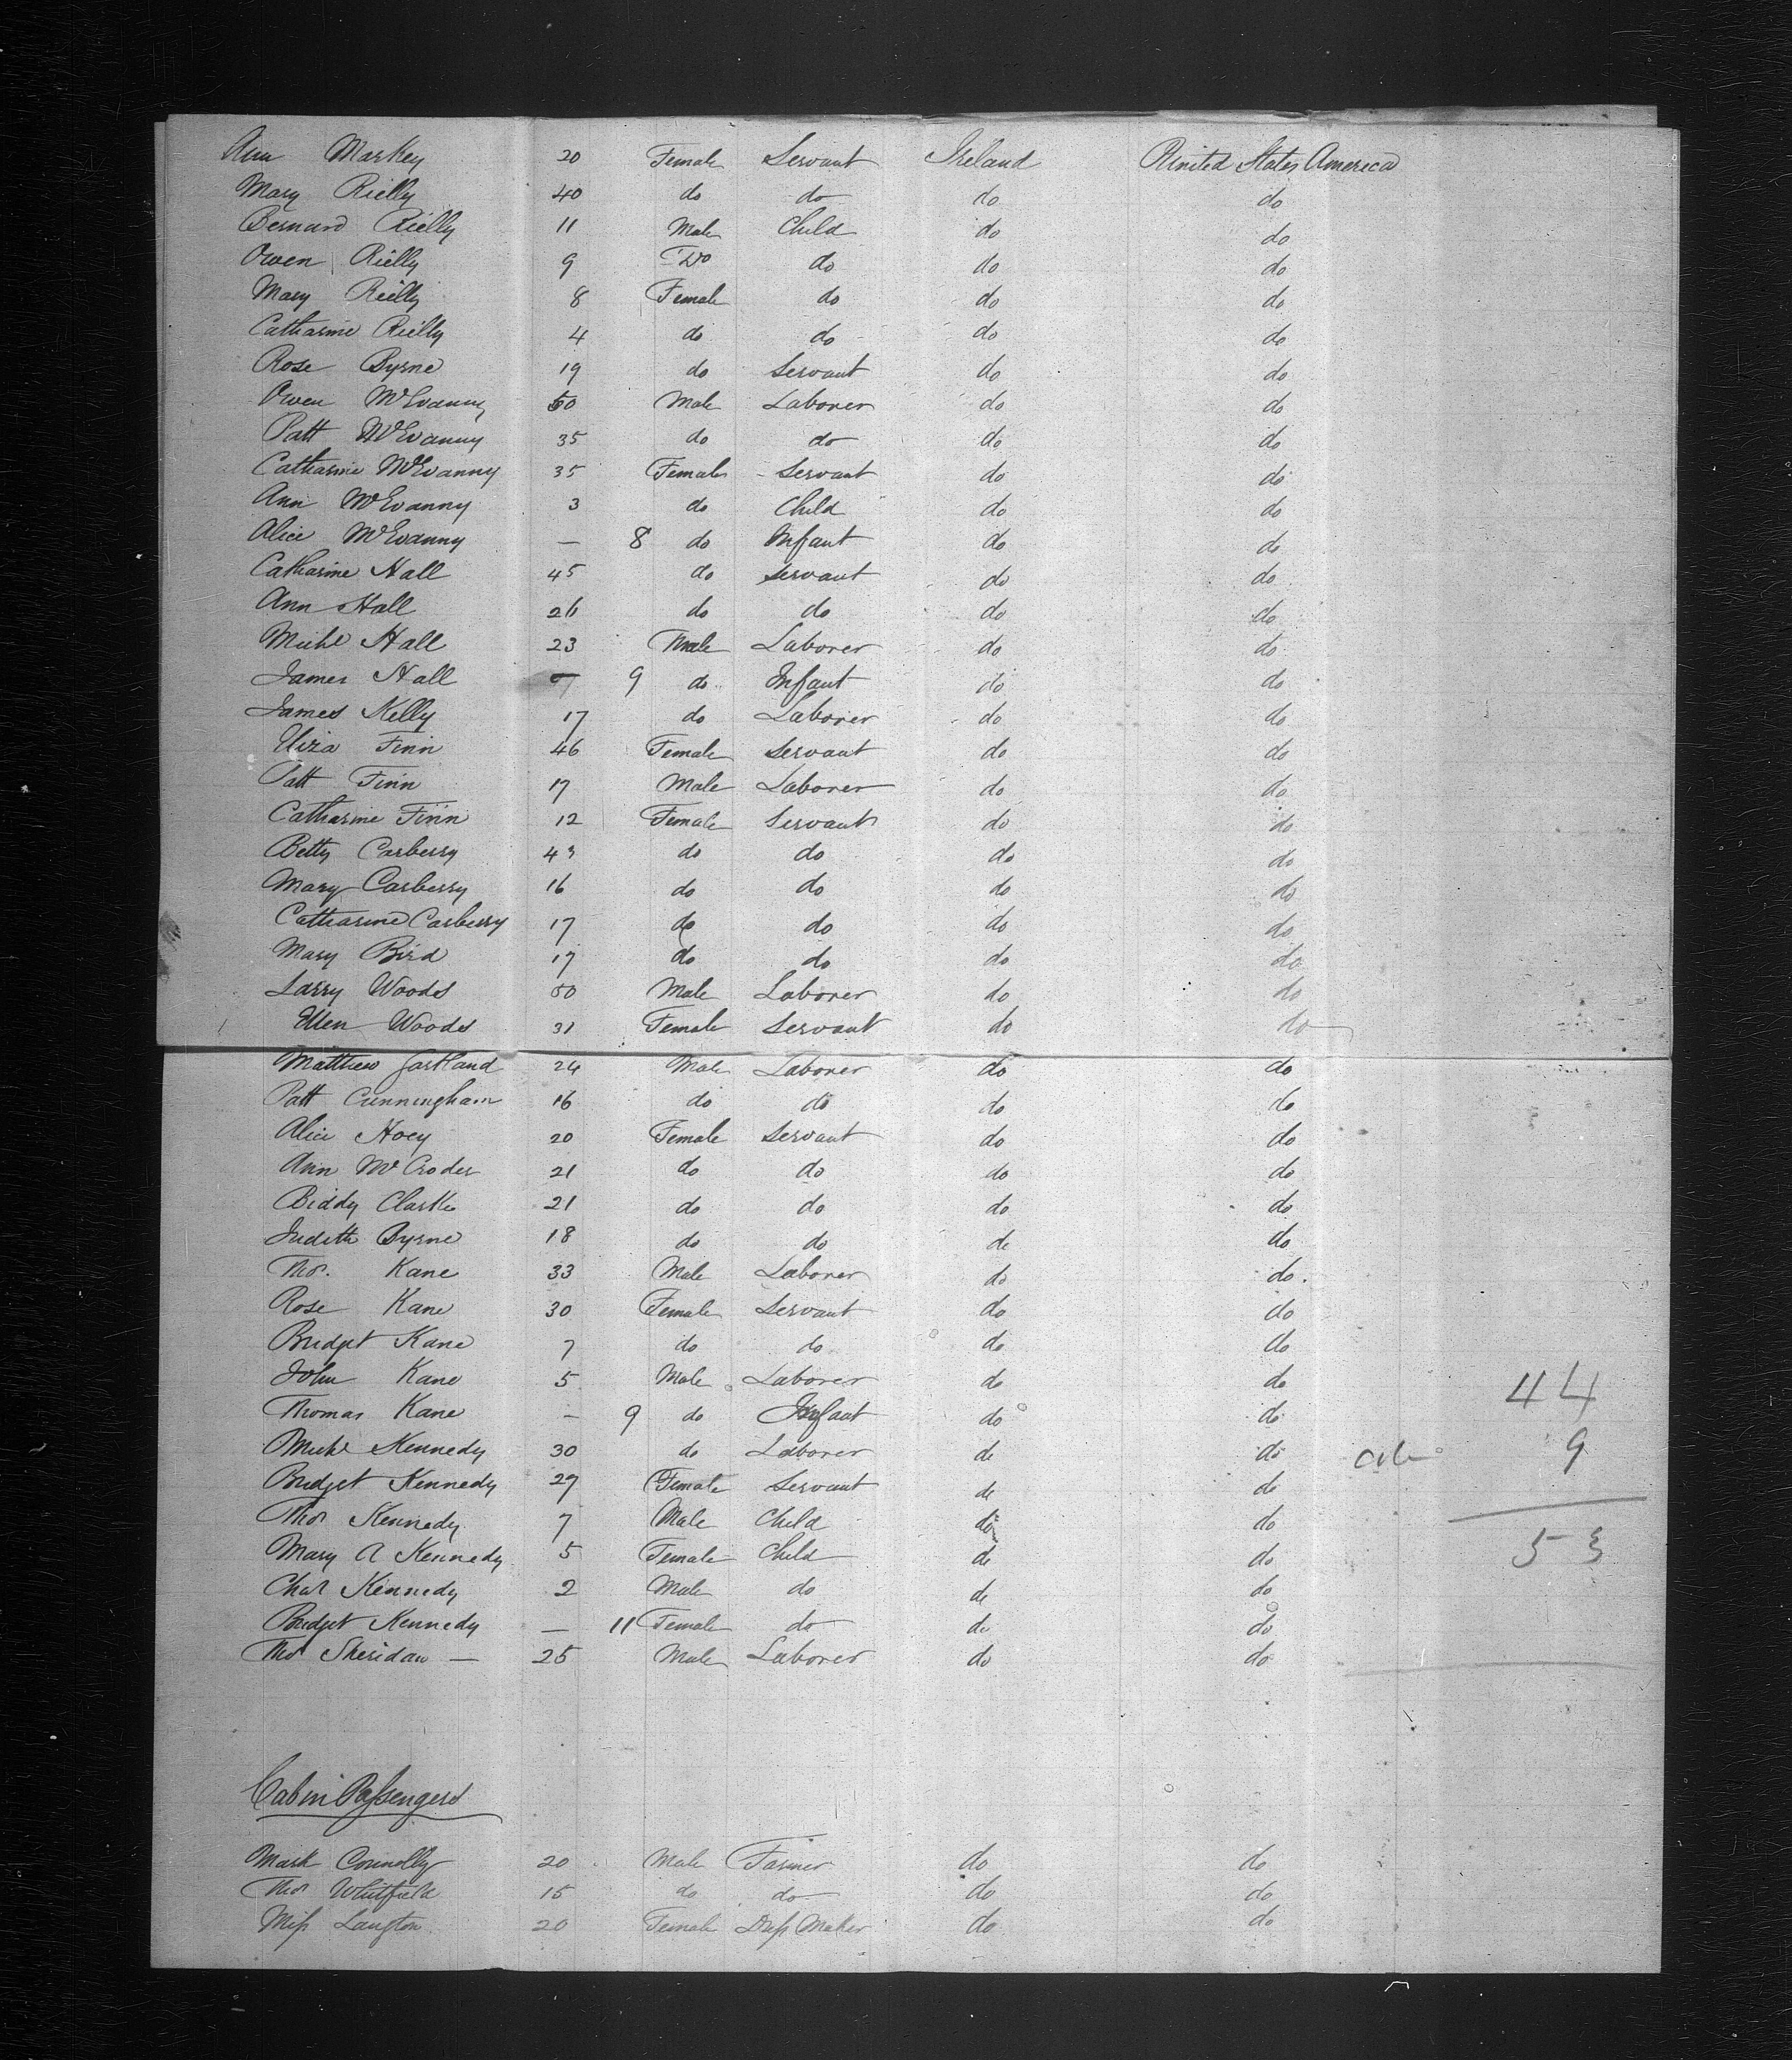 Ann Markey 20 Female Servant Ireland United States America
Mary Rielly 40 do do do do
Bernard Rielly 11 Male Child do do
Owen Rielly 9 Do do do do
Mary Rielly 8 Female do do do
Catharine Rielly 4 do do do do
Rose Byrne 19 do Servant do do
Owen McEvanny 50 Male Laborer do do
Patt McEvanny 35 do do do do
Catharine McEvanny 35 Female Servant do do
Ann McEvanny 3 do Child do do
Alice McEvanny — 8 do Infant do do
Catharine Hall 45 do Servant do do
Ann Hall 26 do do do do
Michl Hall 23 Male Laborer do do
James Hall — 9 do Infant do do
James Kelly 17 do Laborer do do
Eliza Finn 46 Female Servant do do
Patt Finn 17 Male Laborer do do
Catharine Finn 12 Female Servant do do
Betty Carberry 43 do do do do
Mary Carberry 16 do do do do
Catharine Carberry 17 do do do do
Mary Bird 17 do do do do
Larry Woods 50 Male Laborer do do
Ellen Woods 31 Female Servant do do
Matthew Gartland 24 Male Laborer do do
Patt Cunningham 16 do do do do
Alice Hoey 20 Female Servant do do
Ann McCroder 21 do do do do
Biddy Clarke 21 do do do do
Judith Byrne 18 do do do do
Thos. Kane 33 Male Laborer do do.
Rose Kane 30 Female Servant do do
Bridget Kane 7 do do do do
John Kane 5 Male Laborer do do 44
Thomas Kane — 9 do Infant do do
Michl Kennedy 30 do Laborer do do 9
Bridget Kennedy 29 Female Servant do do
Thos Kennedy 7 Male Child do do
Mary A Kennedy 5 Female Child do do 53
Chas Kennedy 2 Male do do do
Bridget Kennedy — 11 Female do do do
Thos Sheridan — 25 Male Laborer do do
Cabin Passengers
Mark Connolly 20 Male Farmer do do
Thos Whitfield 15 do do do do
Miss Langton 20 Female Dress Maker do do